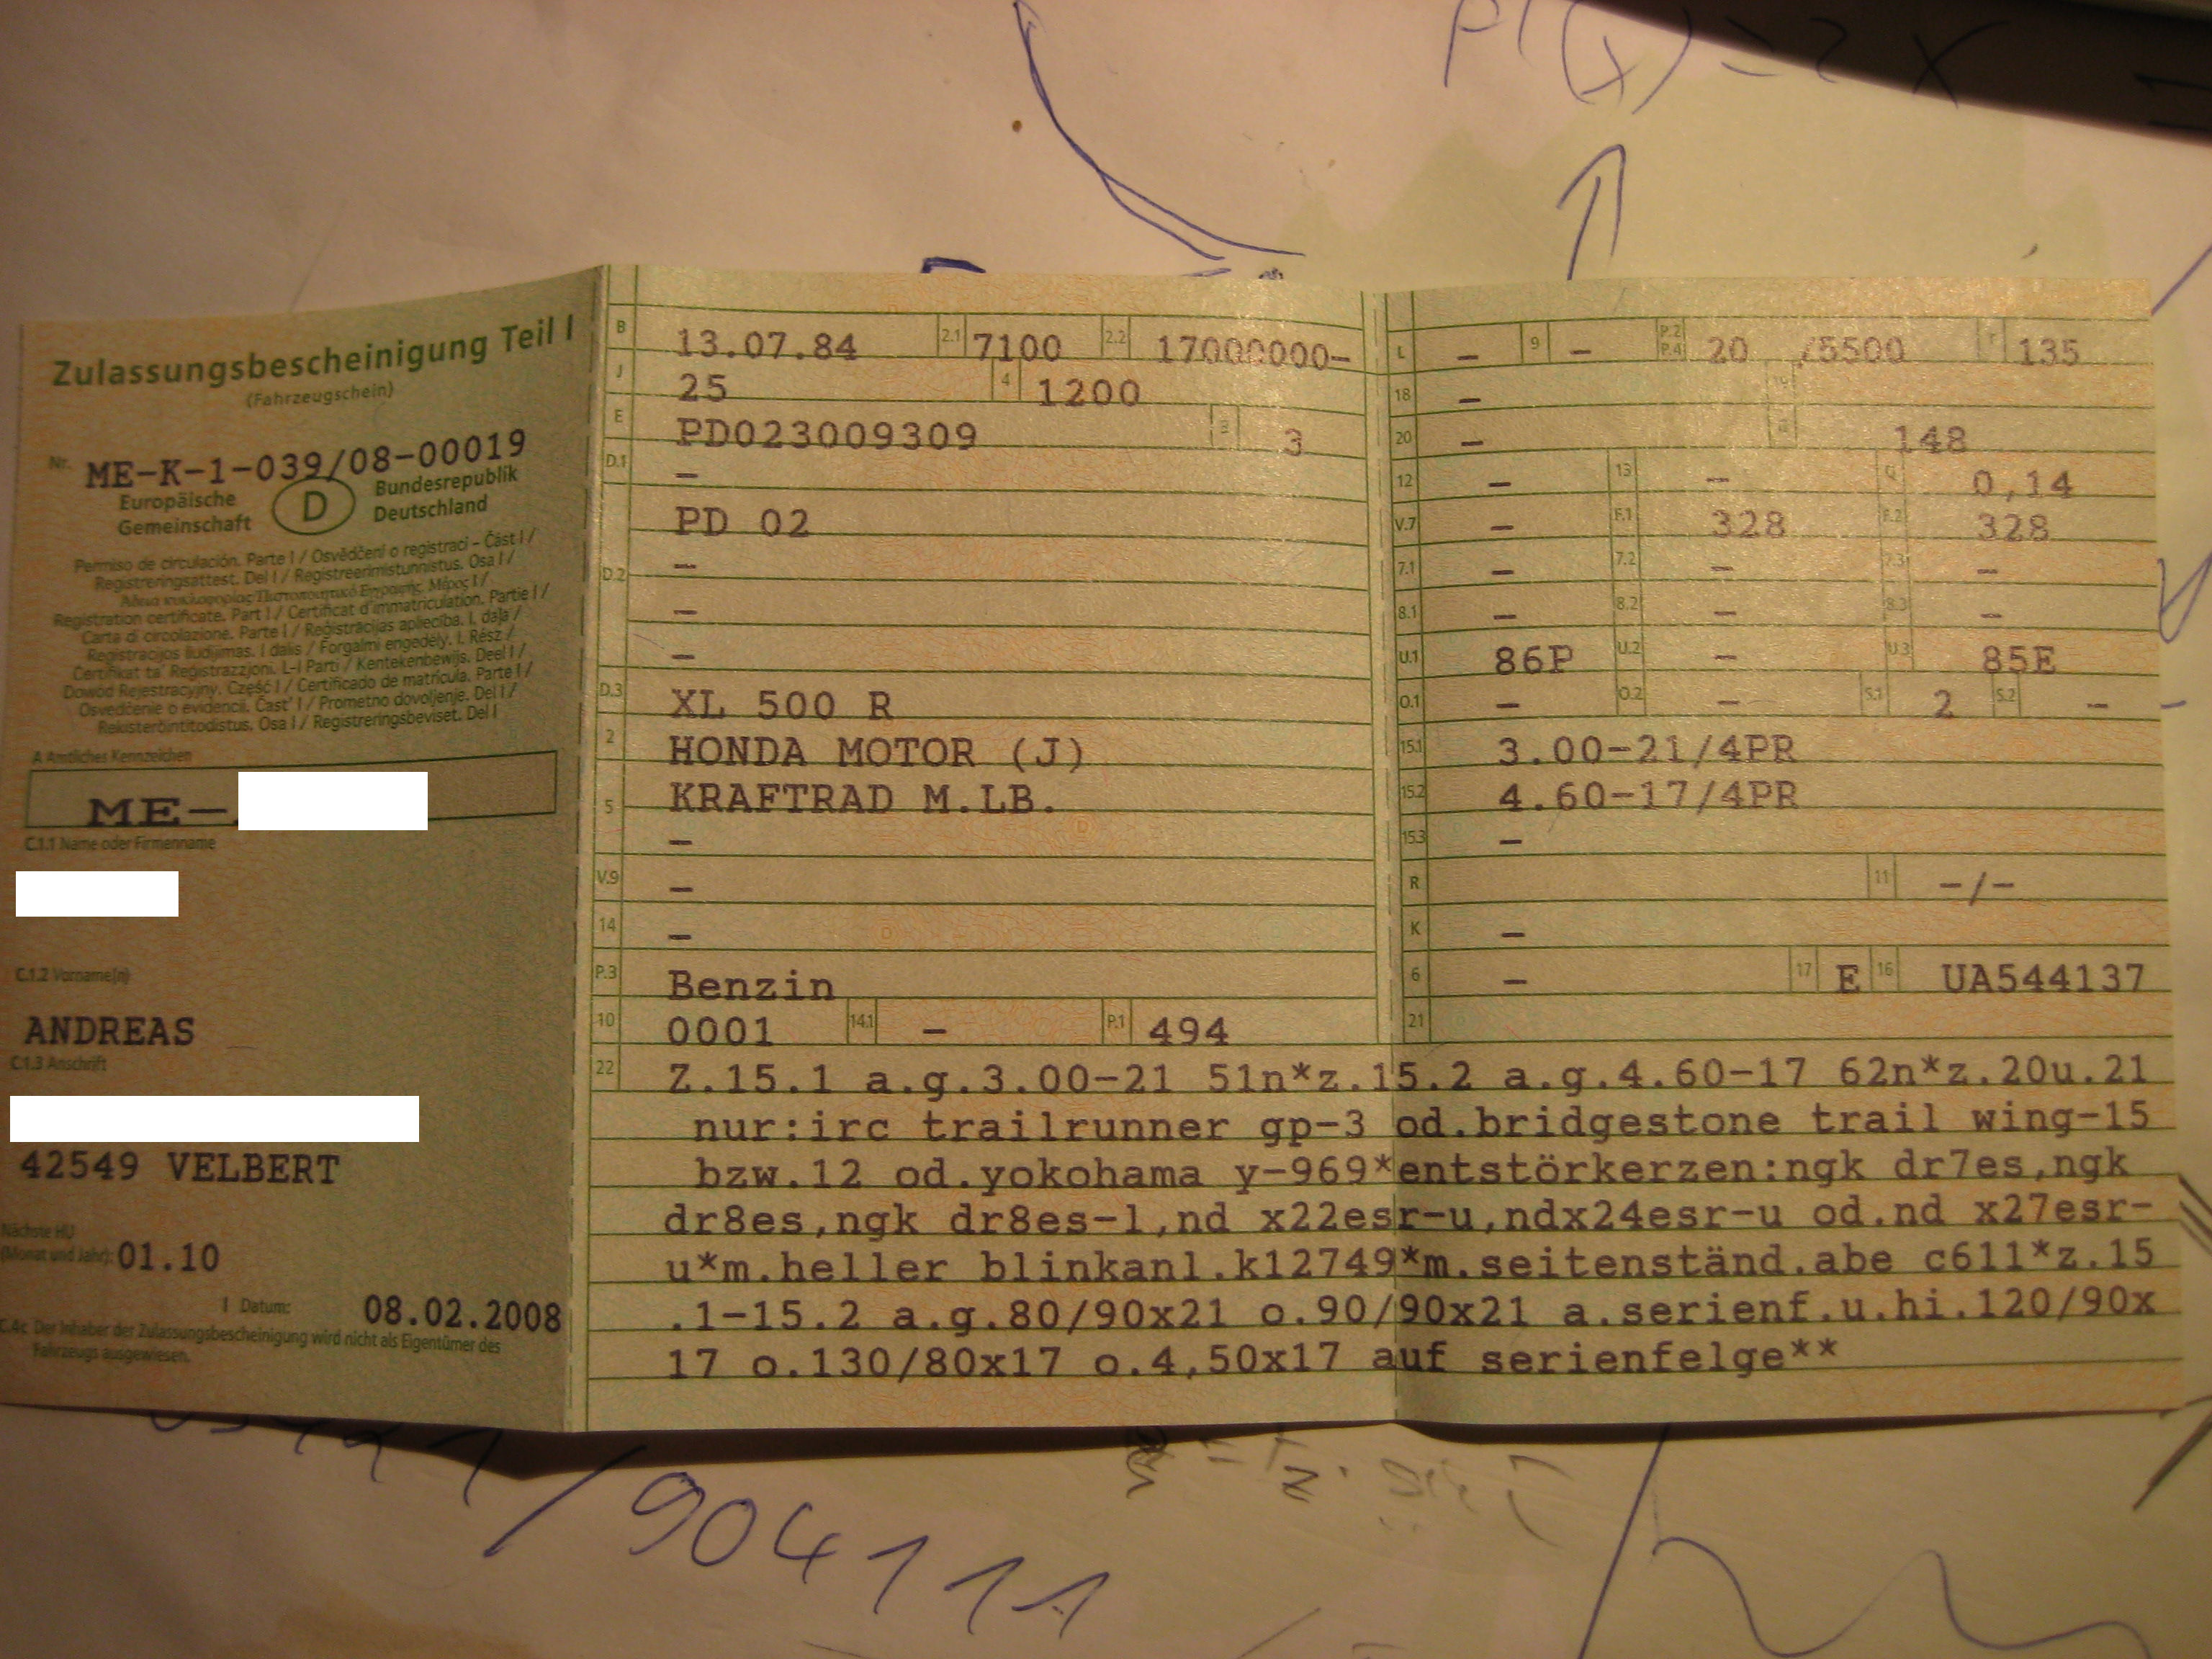 P'(x)=2x
Zulassungsbescheinigung Teil I
(Fahrzeugschein)
Nr. ME-K-1-039/08-00019
Europäische Gemeinschaft D Bundesrepublik Deutschland
Permiso de circulación. Parte I / Osvědčení o registraci – Část I /
Registreringsattest. Del I / Registreerimistunnistus. Osa I /
Άδεια κυκλοφορίας/Πιστοποιητικό Εγγραφής. Μέρος I /
Registration certificate. Part I / Certificat d'immatriculation. Partie I /
Carta di circolazione. Parte I / Reģistrācijas apliecība. I. daļa /
Registracijos liudijimas. I dalis / Forgalmi engedély. I. Rész /
Ċertifikat ta' Reġistrazzjoni. L-I Parti / Kentekenbewijs. Deel I /
Dowód Rejestracyjny. Część I / Certificado de matrícula. Parte I /
Osvedčenie o evidencii. Časť I / Prometno dovoljenje. Del I /
Rekisteröintitodistus. Osa I / Registreringsbeviset. Del I
A Amtliches Kennzeichen
ME-
C.1.1 Name oder Firmenname
C.1.2 Vorname(n)
ANDREAS
C.1.3 Anschrift
42549 VELBERT
Nächste HU
(Monat und Jahr): 01.10
I Datum: 08.02.2008
C.4c Der Inhaber der Zulassungsbescheinigung wird nicht als Eigentümer des
Fahrzeugs ausgewiesen.
B 13.07.84 2.1 7100 2.2 17000000-
J 25 4 1200
E PD023009309 3 3
D.1 -
PD 02
D.2 -
-
-
D.3 XL 500 R
2 HONDA MOTOR (J)
5 KRAFTRAD M.LB.
-
V.9 -
14 -
P.3 Benzin
10 0001 14.1 - P.1 494
L - 9 - P.2 P.4 20 /5500 T 135
18 - 19
20 - G 148
12 - 13 - Q 0,14
V.7 - F.1 328 F.2 328
7.1 - 7.2 - 7.3 -
8.1 - 8.2 - 8.3 -
U.1 86P U.2 - U.3 85E
O.1 - O.2 - S.1 2 S.2 -
15.1 3.00-21/4PR
15.2 4.60-17/4PR
15.3 -
R 11 -/-
K -
6 - 17 E 16 UA544137
21
22 Z.15.1 a.g.3.00-21 51n*z.15.2 a.g.4.60-17 62n*z.20u.21
nur:irc trailrunner gp-3 od.bridgestone trail wing-15
bzw.12 od.yokohama y-969*entstörkerzen:ngk dr7es,ngk
dr8es,ngk dr8es-l,nd x22esr-u,ndx24esr-u od.nd x27esr-
u*m.heller blinkanl.k12749*m.seitenständ.abe c611*z.15
.1-15.2 a.g.80/90x21 o.90/90x21 a.serienf.u.hi.120/90x
17 o.130/80x17 o.4,50x17 auf serienfelge**
/90411